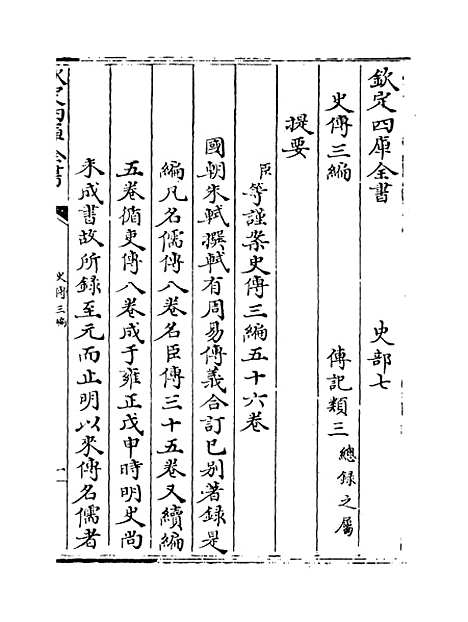 欽定四庫全書　　　史部七
史傳三編　　　　　傳記類三 總錄之屬
提要
臣等謹案史傳三編五十六卷
國朝朱軾撰軾有周易傳義合訂已别著錄是
編凡名儒傳八卷名臣傳三十五卷又續編
五卷循吏傳八卷成于雍正戊申時明史尚
未成書故所錄至元而止明以來傳名儒者
欽定四庫全書
史傳三編
一